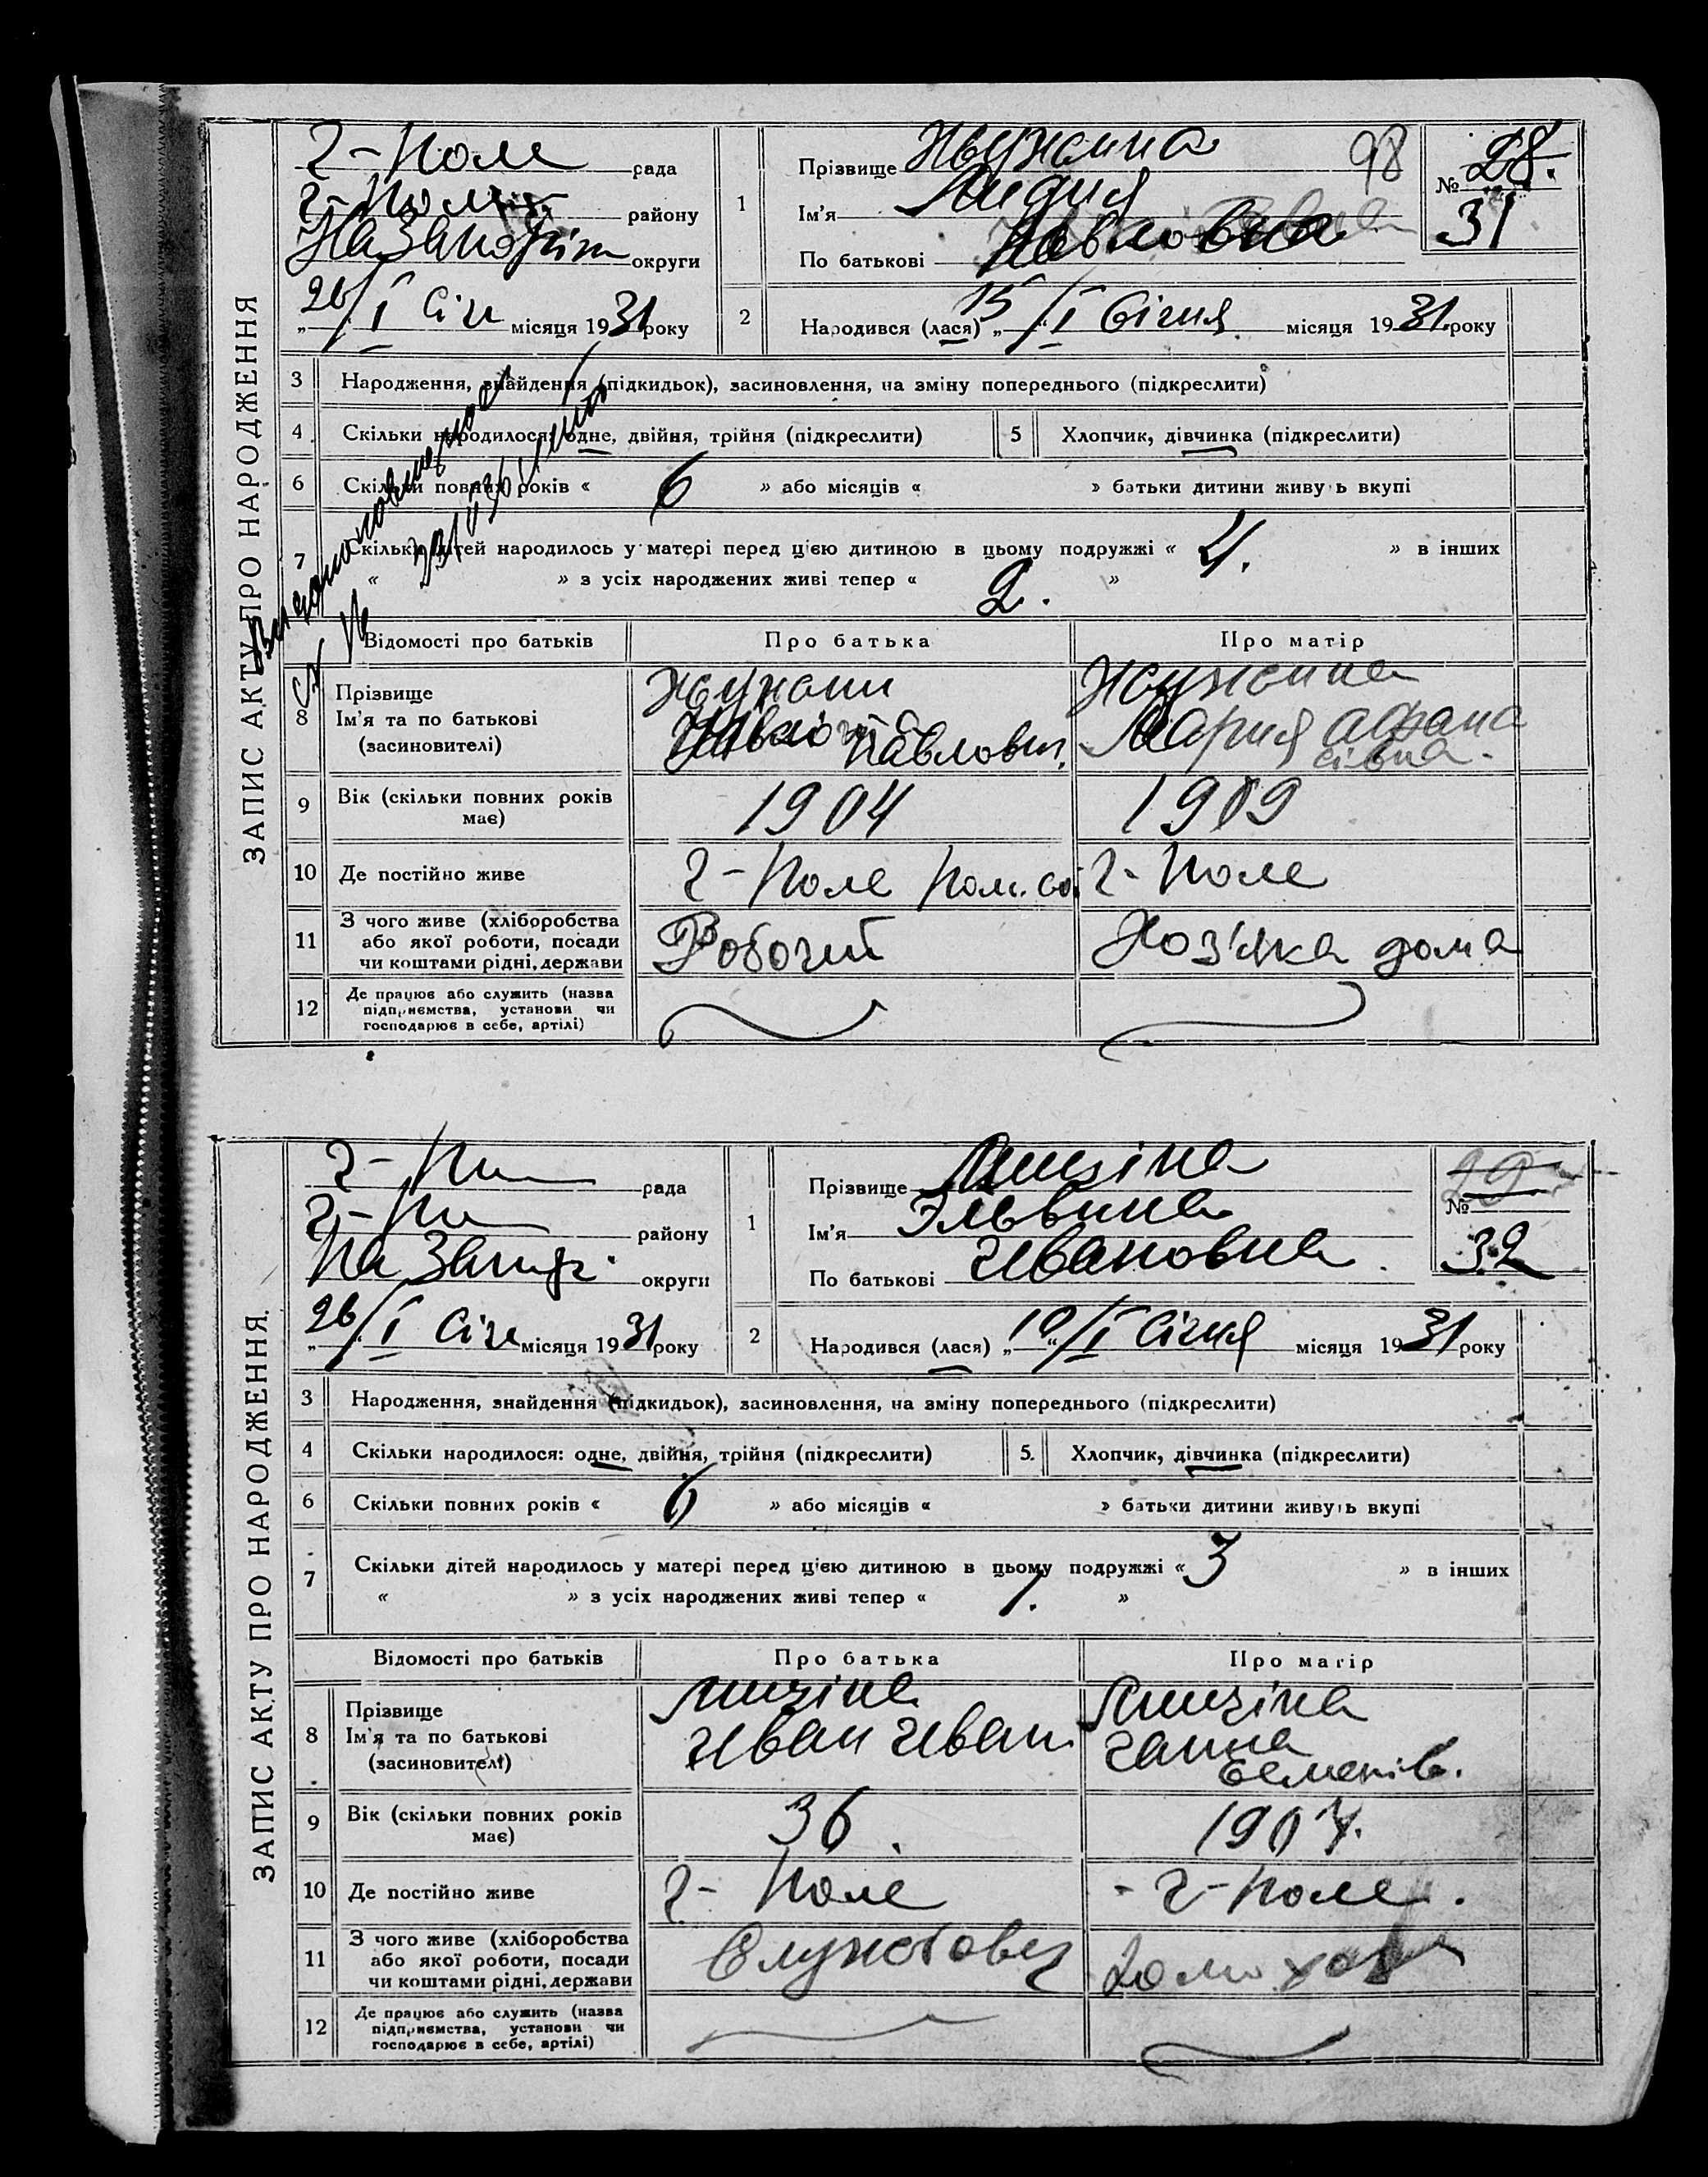 ЗАПИС АКТУ ПРО НАРОДЖЕННЯ
Г-Поле рада
Г-Поле району
На Запоріж округи
„26/I Січ місяця 1931 року
1 Прізвище
Ім'я Лидия
По батькові Павловна
98
№ 28.
31
2 Народився (лася) „15/I Січня місяця 1931 року
3 Народження, знайдення (підкидьок), засиновлення, на зміну попереднього (підкреслити)
4 Скільки народилося: одне, двійня, трійня (підкреслити) 5 Хлопчик, дівчинка (підкреслити)
6 Скільки повних років « 6 » або місяців « » батьки дитини живуть вкупі
7 Скільки дітей народилось у матері перед цією дитиною в цьому подружжі « 4. » в інших
« » з усіх народжених живі тепер « 2. »
Відомості про батьків Про батька Про матір
8 Прізвище
Ім'я та по батькові
(засиновителі)
Павлович
Мария Афана
сівна.
9 Вік (скільки повних років має) 1904 1909
10 Де постійно живе Г-Поле Г-Поле
11 З чого живе (хліборобства або якої роботи, посади чи коштами рідні, держави Робочий Хоз'яка дома
12 Де працює або служить (назва підприємства, установи чи господарює в себе, артілі)
ЗАПИС АКТУ ПРО НАРОДЖЕННЯ.
Г-П рада
Г-П району
На Запор. округи
„26/I Січ місяця 1931 року
1 Прізвище
Ім'я Эльвина
По батькові Ивановна
№ 29
32
2 Народився (лася) „10/I Січня місяця 1931 року
3 Народження, знайдення (підкидьок), засиновлення, на зміну попереднього (підкреслити)
4 Скільки народилося: одне, двійня, трійня (підкреслити) 5. Хлопчик, дівчинка (підкреслити)
6 Скільки повних років « 6 » або місяців « » батьки дитини живуть вкупі
7 Скільки дітей народилось у матері перед цією дитиною в цьому подружжі « 3 » в інших
« » з усіх народжених живі тепер « 1. »
Відомості про батьків Про батька Про матір
8 Прізвище
Ім'я та по батькові
(засиновителі)
Иван Иван
Ганна
Семенів.
9 Вік (скільки повних років має) 36. 1907.
10 Де постійно живе Г-Поле Г-Поле.
11 З чого живе (хліборобства або якої роботи, посади чи коштами рідні, держави Службовец
12 Де працює або служить (назва підприємства, установи чи господарює в себе, артілі)